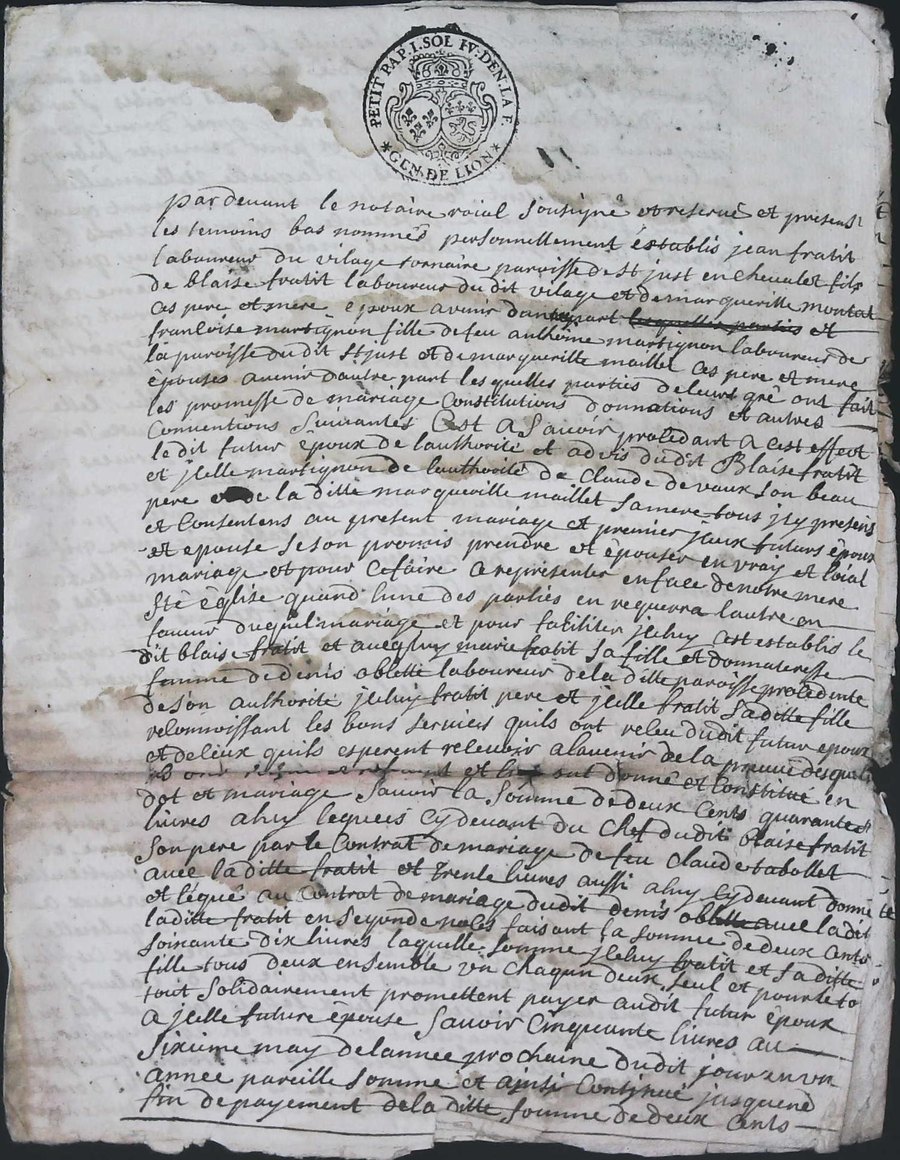 PETIT PAP. I. SOL IV. DEN. LA F.
* GEN. DE LION *
par devant le notaire roial soussigné et reservé et presens
les temoins bas nommés personnellement établis jean fratit
laboureur du vilage tornaire paroisse de st just en chevalet fils
de blaise fratit laboureur du dit vilage et de marguerille montat
ces pere et mere époux avenir dune part lesquelles parties et
francoise martignon fille de feu anthoine martignon laboureur de
la paroisse du dit st just et de marguerille maillet ces pere et mere
épouses avenir dautre part les quelles parties de leurs gré ont fait
les promesse de mariage constitutions donnations et autres
conventions suivantes cest a savoir procédant a cest effect
le dit futur époux de lauthorité et advis du dit blaise fratit
et jcelle martignon de lauthorité de claude devaux son beau
pere et de la ditte marguerille maillet sa mere tous jcy presens
et consentens au present mariage et premier jceux futurs époux
et epouse se son promis prendre et epouser en vray et loial
mariage et pour ce faire ce representer en face de notre mere
ste église quand lune des parties en requerra lautre en
faveur duquel mariage et pour faciliter jceluy est establis le
dit blaise fratit et avecq luy marie fratit sa fille et donnateresse
famme de denis oblette laboureur de la ditte paroisse procédente
de son authorité jceluy fratit pere et jcelle fratit sa ditte fille
reconnoissant les bons services quils ont receu du dit futur epoux
et de ceux quils esperent recevoir alavenir de la preuve desquels
et ont donné et constitué en
dot et mariage savoir la somme de deux cents quarante
livres a luy leguées cy devant du chef du dit blaise fratit
son pere par le contrat de mariage de feu claude tabollet
avec la ditte fratit et trente livres aussi a luy cy devant donné
et légué au contrat de mariage dudit denis oblette avec la dit
laditte fratit en segonde noces faisant la somme de deux cents
soixante dix livres laquelle somme jceluy fratit et sa ditte
fille tous deux ensemble un chaqun deux seul et pour le to
tout solidairement promettent payer audit futur époux
a jcelle future épouse savoir cinquante livres au
sixieme may de lannee prochaine du dit jour en un
année pareille somme et ainsi continué jusquene
fin de payement de la ditte somme de deux cents